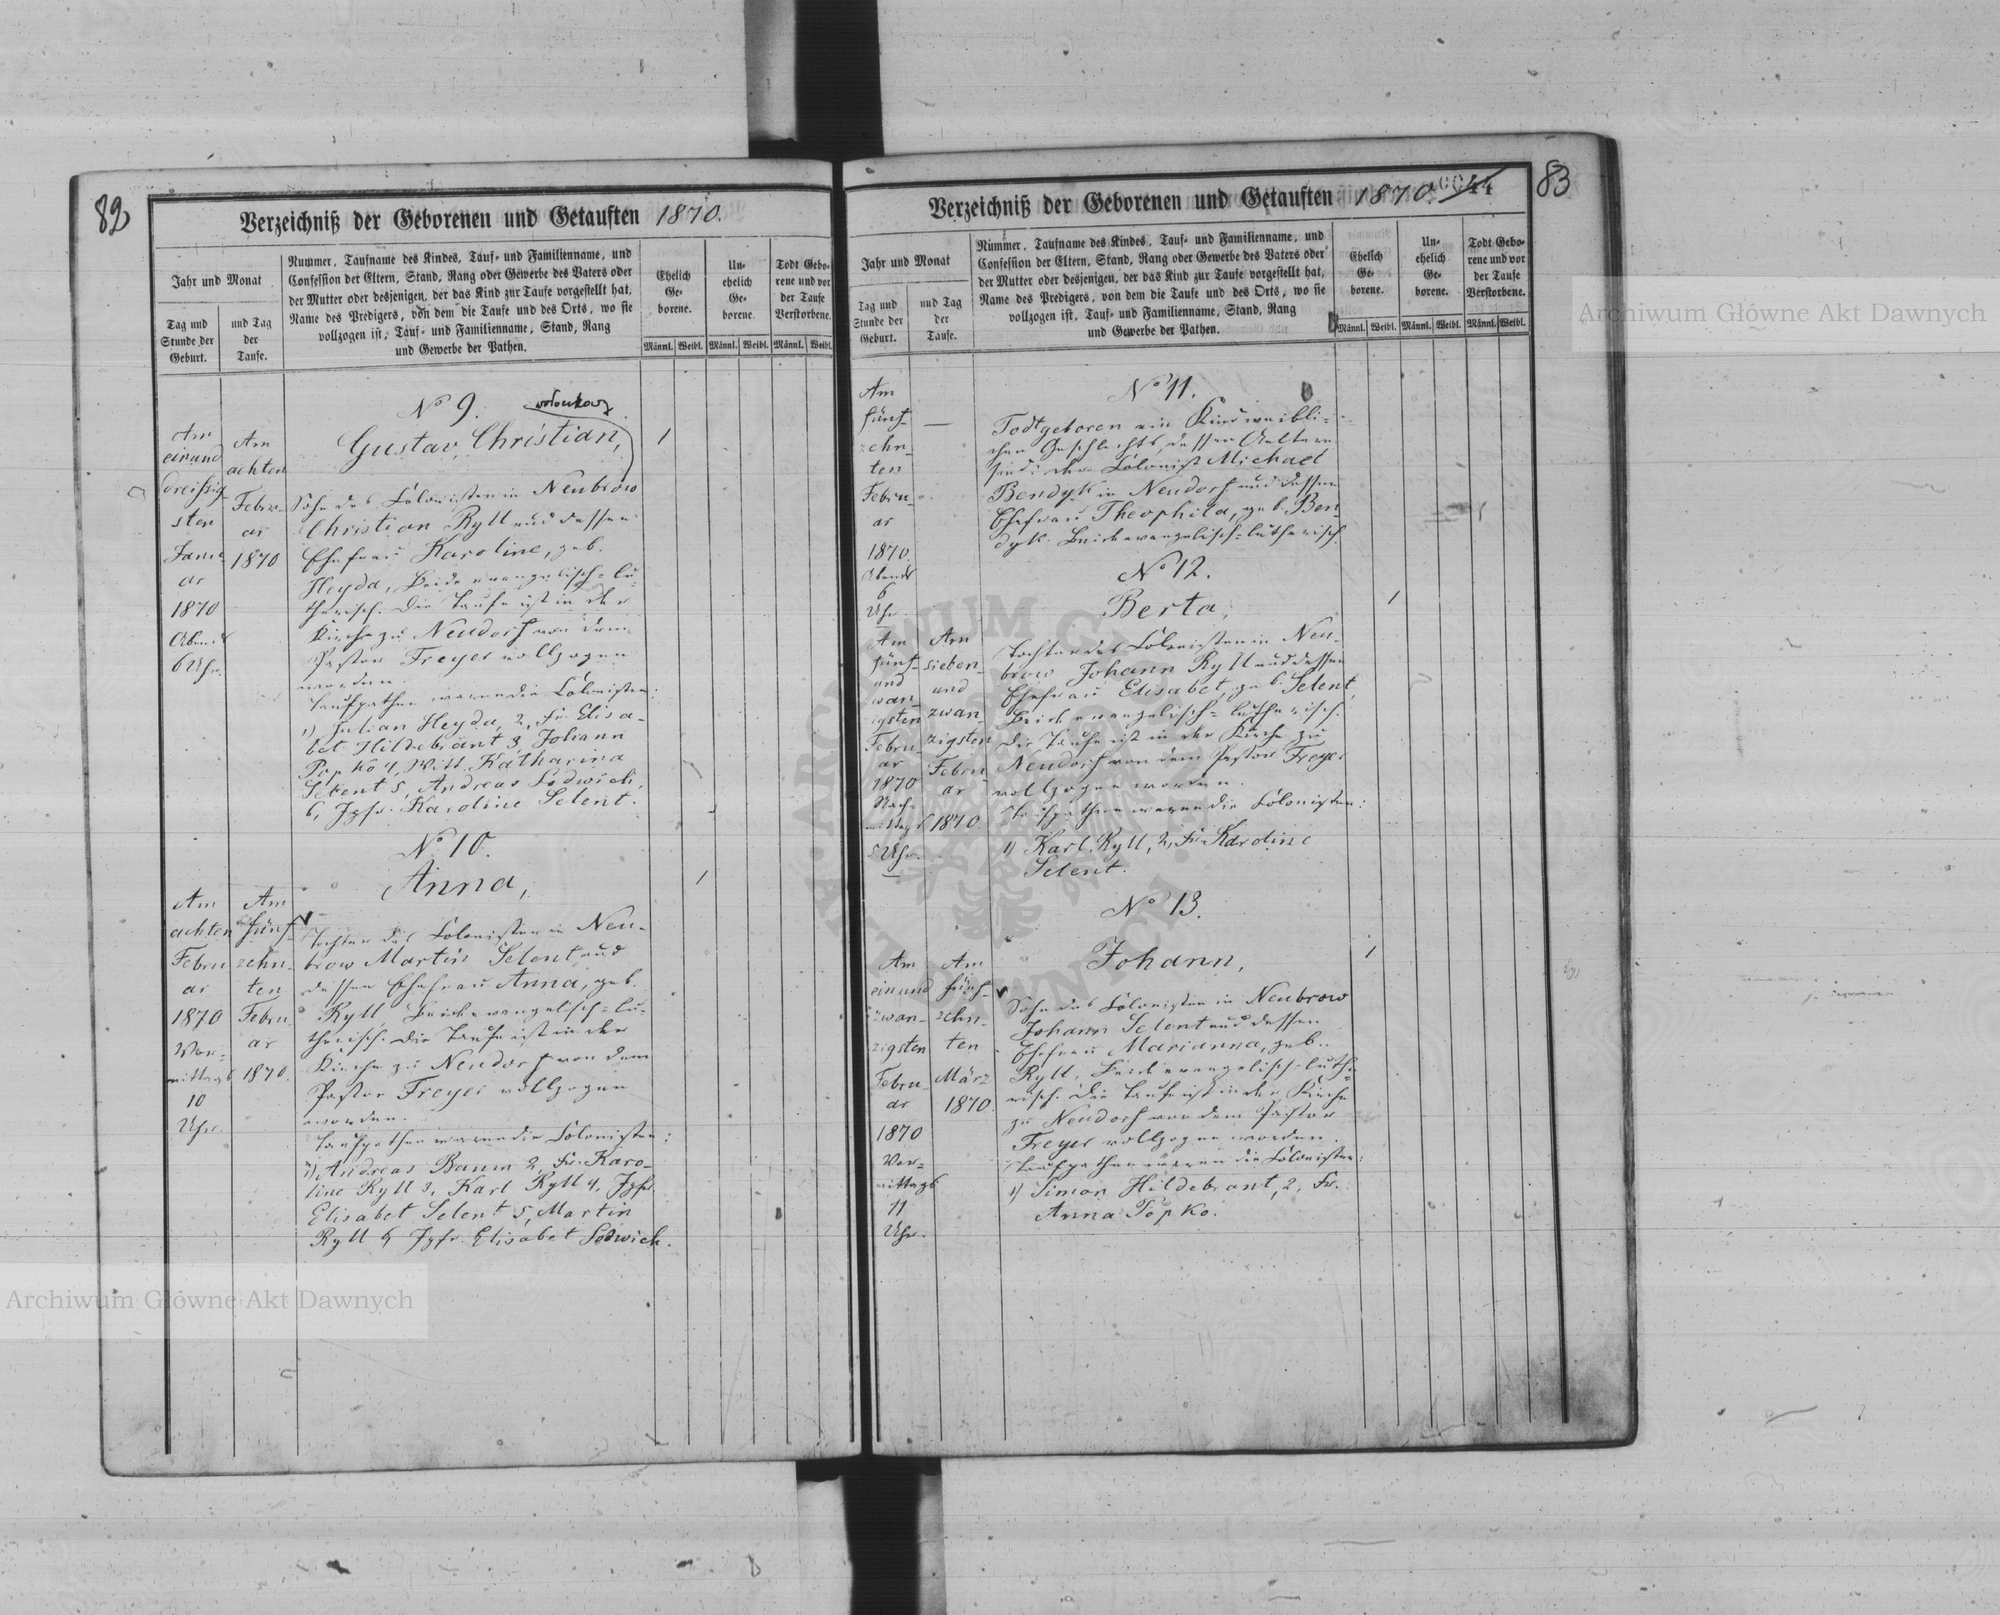 82
Verzeichniß der Geborenen und Getauften 1870.
Jahr und Monat
Tag und
Stunde der
Geburt.
und Tag
der
Taufe.
Nummer, Taufname des Kindes, Tauf- und Familienname, und
Confession der Eltern, Stand, Rang oder Gewerbe des Vaters oder
der Mutter oder desjenigen, der das Kind zur Taufe vorgestellt hat,
Name des Predigers, von dem die Taufe und des Orts, wo sie
vollzogen ist, Tauf- und Familienname, Stand, Rang
und Gewerbe der Pathen.
Ehelich
Ge-
borene.
Un-
ehelich
Ge-
borene
Todt Gebo-
rene und vor
der Taufe
Verstorbene.
Männl. Weibl. Männl. Weibl. Männl. Weibl.
Am
einund
dreißig-
sten
Janu-
ar
1870
Abends
6 Uhr.
Am
achten
Febru-
ar
1870
No 9.
Gustav, Christian,
1
Sohn des Colonisten in Neubrow
Christian Ryll und dessen
Ehefrau Karoline, geb.
Heyda, Beide evangelisch-lu-
therisch. Die Taufe ist in der
Kirche zu Neudorf von dem
Pastor Freyer vollzogen
worden.
Taufpathen waren die Colonisten:
1) Julian Heyda, 2, Fr. Elisa-
bet Hildebrant 3, Johann
Popko 4, Witt. Katharina
Selent 5, Andreas Ludwich,
6, Jgfr. Karoline Selent.
Am
achten
Febru
ar
1870
Vor-
mittags
10
Uhr
Am
fünf-
zehn-
ten
Febru-
ar
1870.
No 10.
Anna,
1
Tochter des Colonisten in Neu-
brow Martin Selent und
dessen Ehefrau Anna, geb.
Ryll, Beide evangelisch-lu-
therisch. Die Taufe ist in der
Kirche zu Neudorf von dem
Pastor Freyer vollzogen
worden.
Taufpathen waren die Colonisten:
1), Andreas Baum 2, Fr. Karo-
line Ryll 3, Karl Ryll 4, Jgfr.
Elisabet Selent 5, Martin
Ryll 6 Jgfr. Elisabet Ludwich.
83
Verzeichniß der Geborenen und Getauften 1870.
0044
Jahr und Monat
Tag und
Stunde der
Geburt.
und Tag
der
Taufe.
Nummer, Taufname des Kindes, Tauf- und Familienname, und
Confession der Eltern, Stand, Rang oder Gewerbe des Vaters oder
der Mutter oder desjenigen, der das Kind zur Taufe vorgestellt hat,
Name des Predigers, von dem die Taufe und des Orts, wo sie
vollzogen ist, Tauf- und Familienname, Stand, Rang
und Gewerbe der Pathen.
Ehelich
Ge-
borene.
Un-
ehelich
Ge-
borene.
Todt Gebo-
rene und vor
der Taufe
Verstorbene.
Männl. Weibl. Männl. Weibl. Männl. Weibl.
Am
fünf-
zehn-
ten
Febru-
ar
1870
Abends
6
Uhr.
—
No 11.
Todtgeboren ein Kind weibli-
chen Geschlechts, dessen Aeltern
sind: der Colonist Michael
Bendyk in Neudorf und dessen
Ehefrau Theophila, geb. Ben-
dyk. Beide evangelisch-lutherisch.
Am
fünf-
und
zwan-
zigsten
Febru-
ar
1870
Nach-
mittags
5 Uhr.
Am
sieben-
und
zwan-
zigsten
Febru-
ar
1870.
No 12.
Berta,
1
Tochter des Colonisten in Neu-
brow Johann Ryll und dessen
Ehefrau Elisabet, geb. Selent,
Beide evangelisch-lutherisch.
Die Taufe ist in der Kirche zu
Neudorf von dem Pastor Freyer
vollzogen worden.
Taufpathen waren die Colonisten:
1) Karl Ryll, 2, Fr. Karoline
Selent.
Am
einund
zwan-
zigsten
Febru-
ar
1870
Vor-
mittags
11
Uhr.
Am
fünf-
zehn-
ten
März
1870.
No 13.
Johann,
1
Sohn des Colonisten in Neubrow
Johann Selent und dessen
Ehefrau Marianna, geb.
Ryll, Beide evangelisch-luthe-
risch. Die Taufe ist in der Kirche
zu Neudorf von dem Pastor
Freyer vollzogen worden.
Taufpathen waren die Colonisten:
1) Simon Hildebrant, 2, Fr.
Anna Popko.
Archiwum Główne Akt Dawnych
Archiwum Główne Akt Dawnych